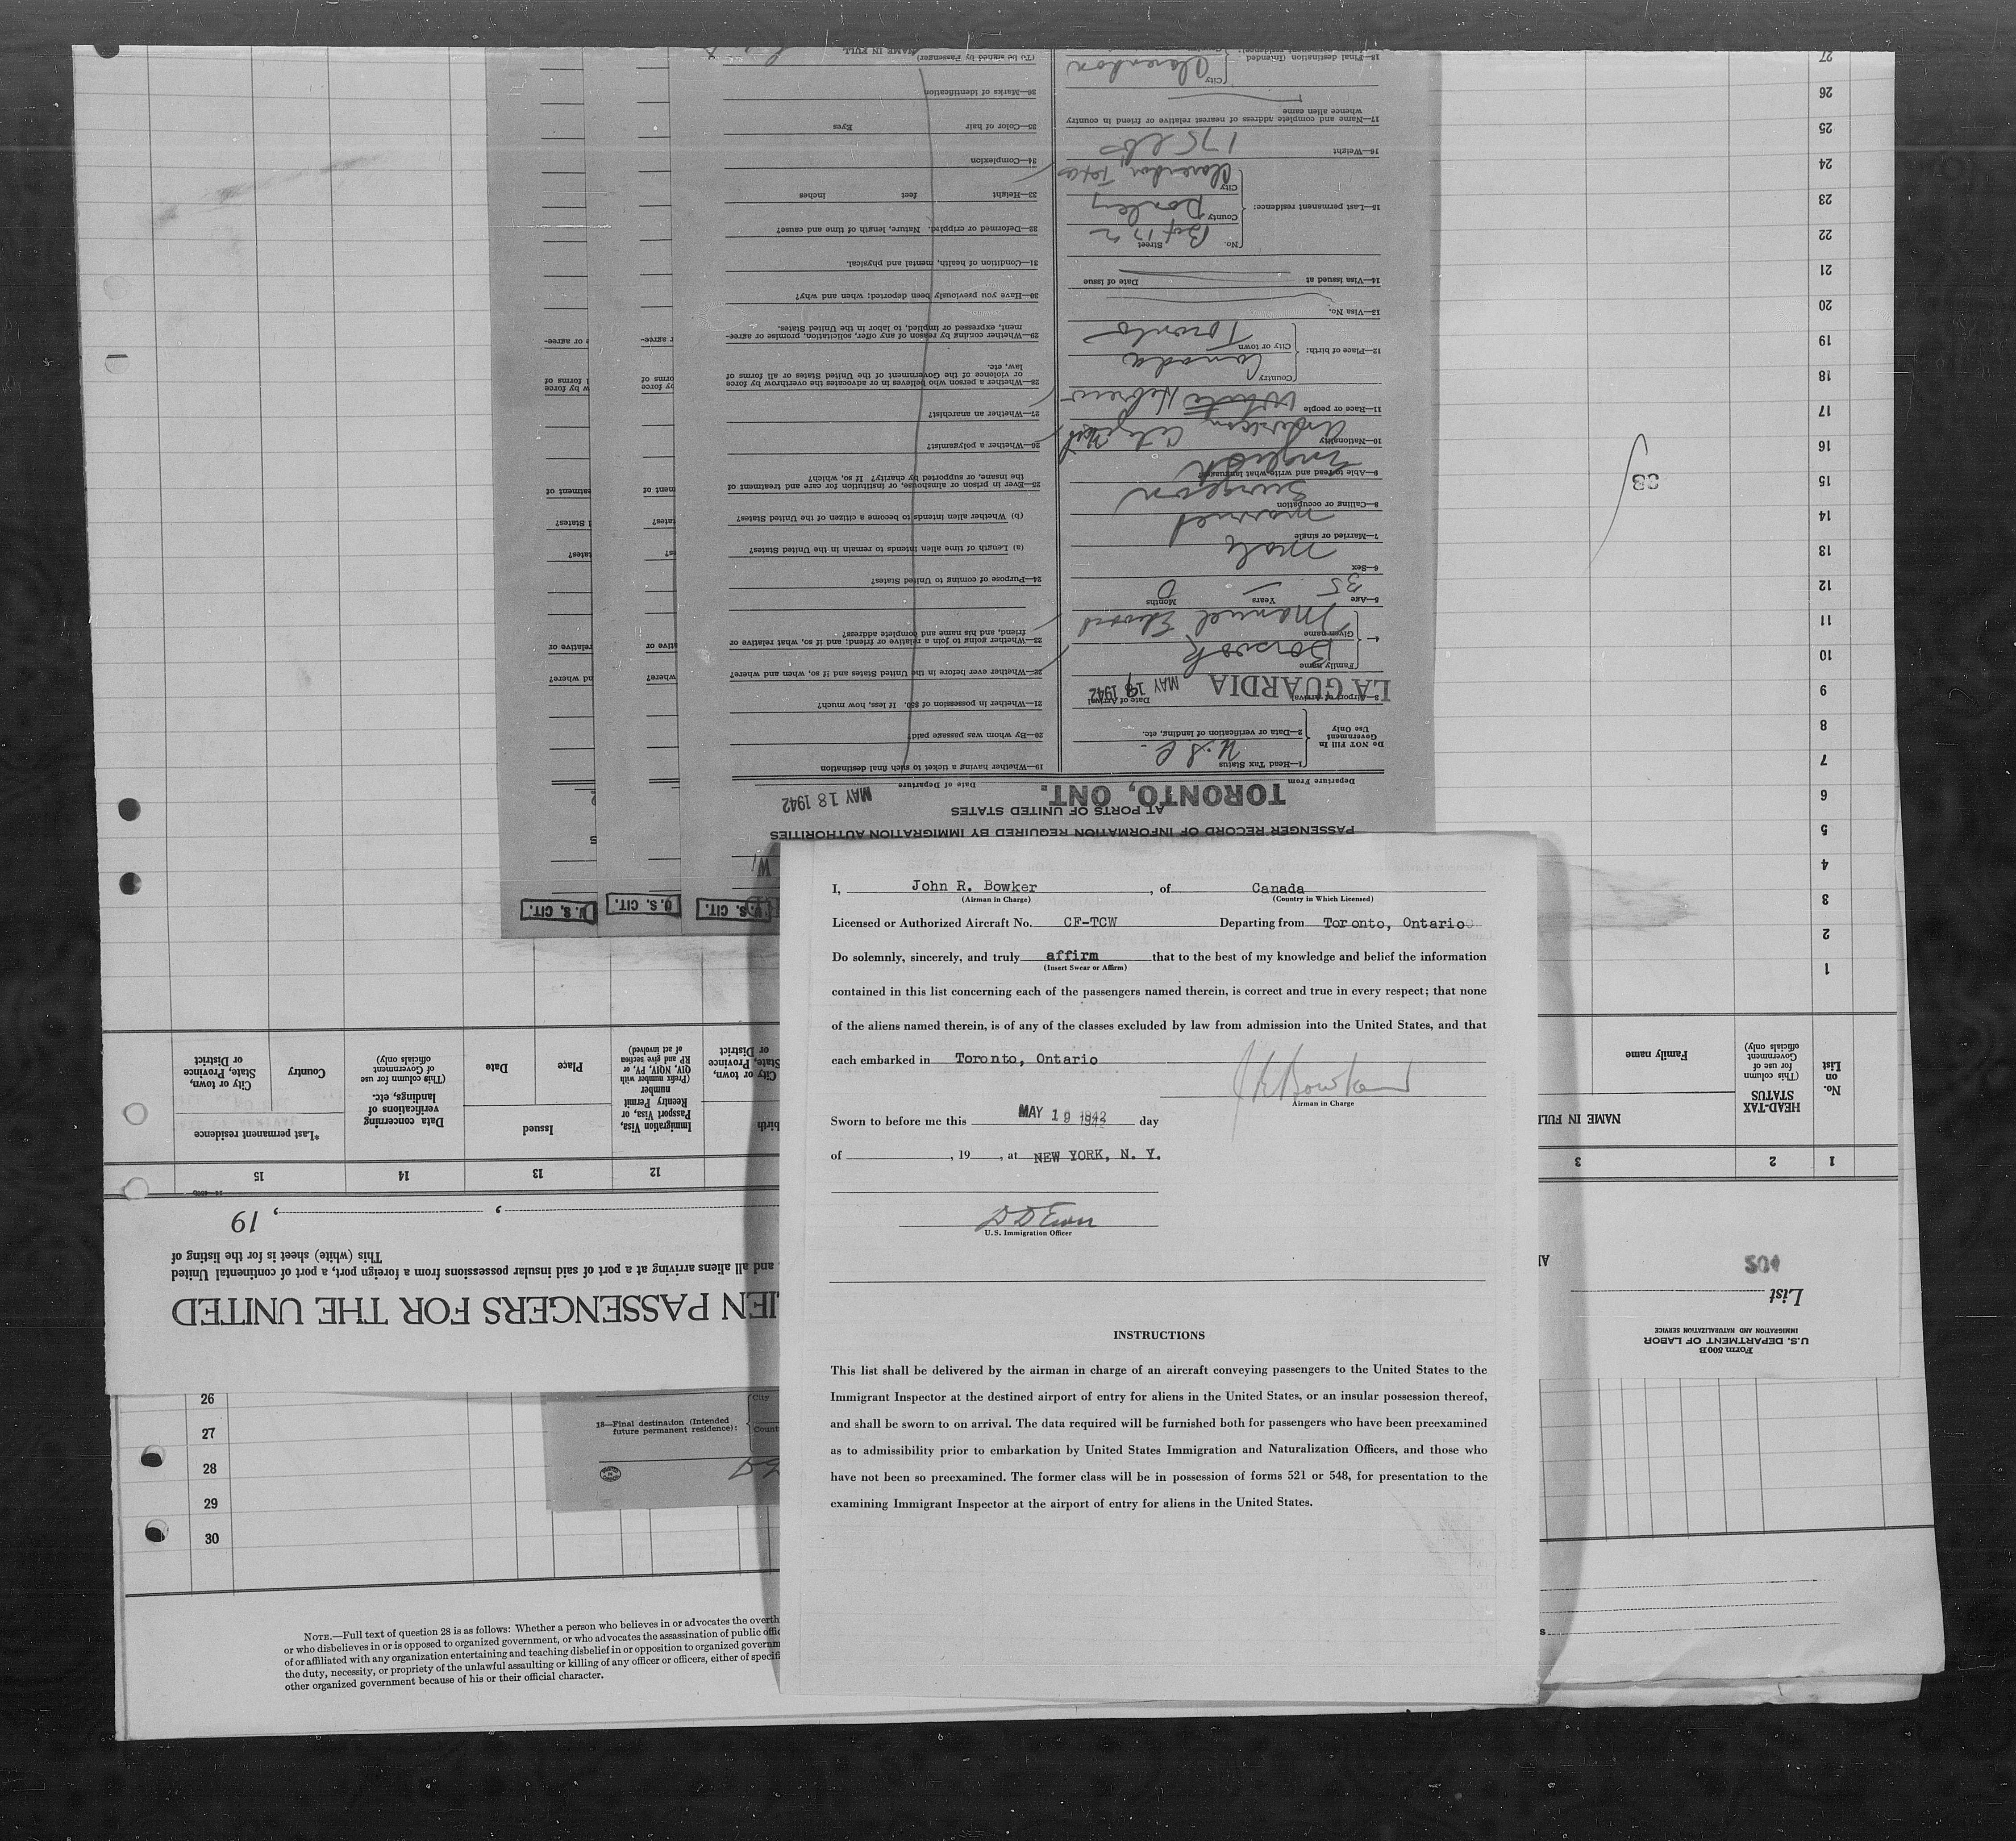 I, John R. Bowker, of Canada
(Airman in Charge) (Country in Which Licensed)
Licensed or Authorized Aircraft No. CF-TCW Departing from Toronto, Ontario
Do solemnly, sincerely, and truly affirm that to the best of my knowledge and belief the information
(Insert Swear or Affirm)
contained in this list concerning each of the passengers named therein, is correct and true in every respect; that none
of the aliens named therein, is of any of the classes excluded by law from admission into the United States, and that
each embarked in Toronto, Ontario
J R Bowker
Airman in Charge
Sworn to before me this MAY 19 1942 day
of , 19 , at NEW YORK, N. Y.
U.S. Immigration Officer
INSTRUCTIONS
This list shall be delivered by the airman in charge of an aircraft conveying passengers to the United States to the
Immigrant Inspector at the destined airport of entry for aliens in the United States, or an insular possession thereof,
and shall be sworn to on arrival. The data required will be furnished both for passengers who have been preexamined
as to admissibility prior to embarkation by United States Immigration and Naturalization Officers, and those who
have not been so preexamined. The former class will be in possession of forms 521 or 548, for presentation to the
examining Immigrant Inspector at the airport of entry for aliens in the United States.
U. S. CIT. U. S. CIT. U. S. CIT.
PASSENGER RECORD OF INFORMATION REQUIRED BY IMMIGRATION AUTHORITIES
AT PORTS OF UNITED STATES
TORONTO, ONT. MAY 18 1942
Departure From Date of Departure
Do NOT Fill In
Government
Use Only
1—Head Tax Status U.S.C.
2—Data or verification of landing, etc.
3—Airport of Arrival LA GUARDIA Date of Arrival MAY 19 1942
4— Family name
Given name Manuel Edward
5—Age 35 Years Months 0
6—Sex Male
7—Married or single Married
8—Calling or occupation Surgeon
9—Able to read and write what language? English
10—Nationality
11—Race or people White Hebrew
12—Place of birth: Country Canada
City or town Toronto
13—Visa No.
14—Visa issued at Date of issue
15—Last permanent residence: No. Street
County Donley
City Clarendon, Texas
16—Weight 175 lbs
17—Name and complete address of nearest relative or friend in country
whence alien came
18—Final destination (Intended
future permanent residence): City Clarendon
19—Whether having a ticket to such final destination
20—By whom was passage paid?
21—Whether in possession of $50. If less, how much?
22—Whether ever before in the United States and if so, when and where?
23—Whether going to join a relative or friend; and if so, what relative or
friend, and his name and complete address?
24—Purpose of coming to United States?
(a) Length of time alien intends to remain in the United States?
(b) Whether alien intends to become a citizen of the United States?
25—Ever in prison or almshouse, or institution for care and treatment of
the insane, or supported by charity? If so, which?
26—Whether a polygamist?
27—Whether an anarchist?
28—Whether a person who believes in or advocates the overthrow by force
or violence of the Government of the United States or all forms of
law, etc.
29—Whether coming by reason of any offer, solicitation, promise or agree-
ment, expressed or implied, to labor in the United States.
30—Have you previously been deported; when and why?
31—Condition of health, mental and physical.
32—Deformed or crippled. Nature, length of time and cause?
33—Height feet inches
34—Complexion
35—Color of hair Eyes
36—Marks of identification
(To be signed by Passenger)
NAME IN FULL
Form 500 B
U.S. DEPARTMENT OF LABOR
IMMIGRATION AND NATURALIZATION SERVICE
List
IEN PASSENGERS FOR THE UNITED
and all aliens arriving at a port of said insular possessions from a foreign port, a port of continental United
This (white) sheet is for the listing of
, , 19
1 2 3 12 13 14 15
No.
on
List
HEAD-TAX
STATUS
(This column
for use of
Government
officials only)
NAME IN FULL
Family name
Immigration Visa,
Passport Visa, or
Reentry Permit
number
(Prefix number with
QIV, NQIV, PV, or
RP and give section
of act involved)
Issued
Place Date
Data concerning
verifications of
landings, etc.
(This column for use
of Government
officials only)
*Last permanent residence
Country
City or town,
State, Province
or District
1
2
3
4
5
6
7
8
9
10
11
12
13
14
15
16
17
18
19
20
21
22
23
24
25
26
27
26
27
28
29
30
18—Final destination (Intended
future permanent residence):
City
NOTE.—Full text of question 28 is as follows: Whether a person who believes in or advocates the overth
or who disbelieves in or is opposed to organized government, or who advocates the assassination of public offic
of or affiliated with any organization entertaining and teaching disbelief in or opposition to organized governm
the duty, necessity, or propriety of the unlawful assaulting or killing of any officer or officers, either of specifi
other organized government because of his or their official character.